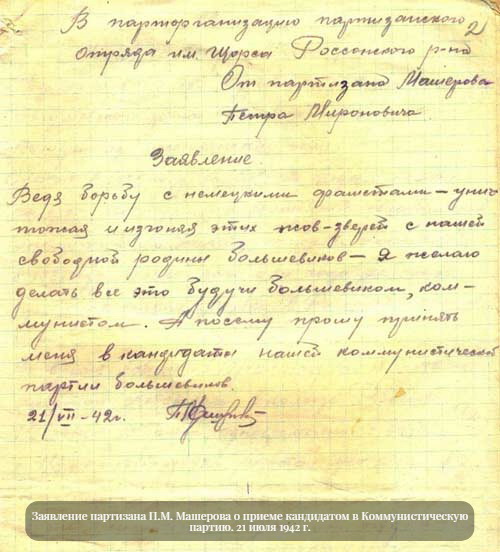 2
В парторганизацию партизанского
отряда им. Щорса Россонского р-на
От партизана Машерова
Петра Мироновича.
Заявление.
Ведя борьбу с немецкими фашистами – унич-
тожая и изгоняя этих псов-зверей с нашей
свободной родины большевиков – я желаю
делать все это будучи большевиком, ком-
мунистом. А посему прошу принять
меня в кандидаты нашей коммунистической
партии большевиков.
21/VII-42г.
Заявление партизана П.М. Машерова о приеме кандидатом в Коммунистическую
партию. 21 июля 1942 г.